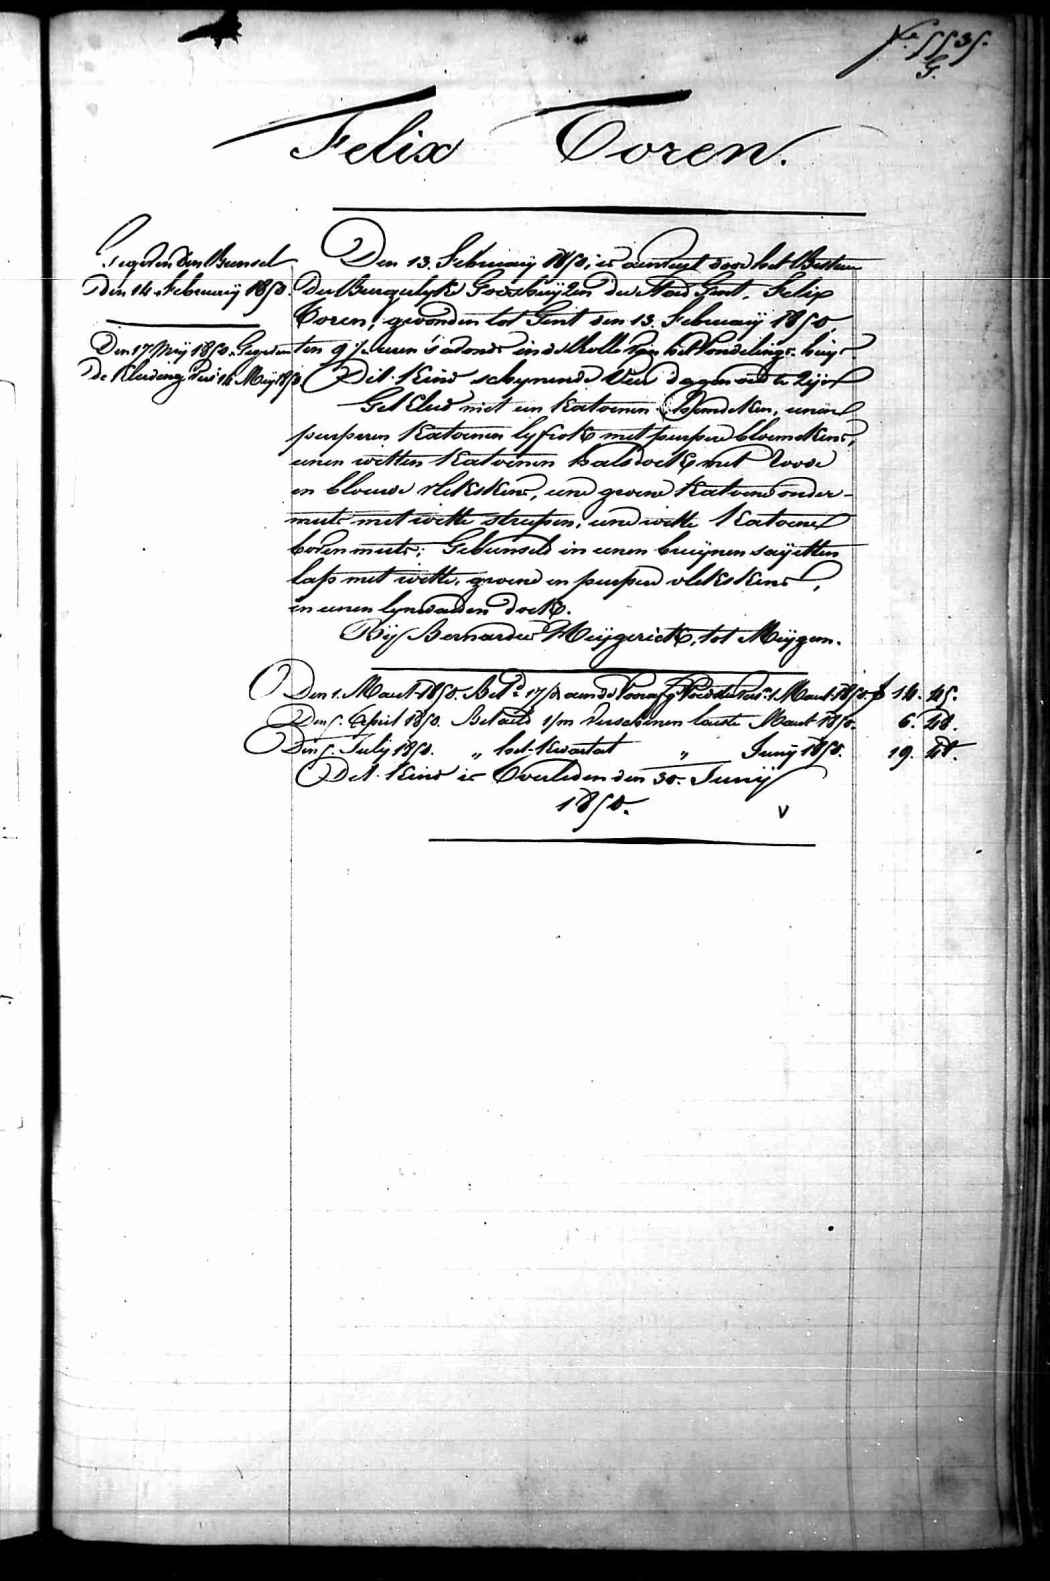 5535.
G.
Felix Toren.
Gegeven den Bunsel
Den 14 February 1850.
Den 17 Meij 1850. Gegeven
de Kleeding Vers 14 Meij 1850
Den 13. February 1850, is door het Bestier
der Burgerlyke Godshuyzen der Stad Gent, Felix
Toren, gevonden tot Gent den 13. February 1850,
ten 9 ½ uren 's avonds in de Rolle van het Vondelings-huys
Dit Kind schynende dagen oud te zyn
Gekleed met een Katoenen Hemdeken, eenen
purperen Katoenen lyfrok met purpere bloemekens,
eenen witten Katoenen halsdoek met roode
en blauwe vlekskens, eene groene Katoene onder-
muts met witte streepen, eene witte Katoene
boven muts; Gebunseld in eenen bruynen sayetten
lap met witte, groene en purpere vlekskens,
in eenen lynwaeden doek.
Bij Bernardus Meygerick, tot Meygem.
Den 1. Maert 1850. Betd 17/ aen de Voedster Vers. 1 Maert 1850. f 14. 45.
Den 5. April 1850. Betaeld 1/m Verschenen laeste Maert 1850. 6. 48.
Den 5. July 1850. „ het Kwartael „ Junij 1850. 19. 48.
Dit Kind is Overleden den 30. Junij
1850. v